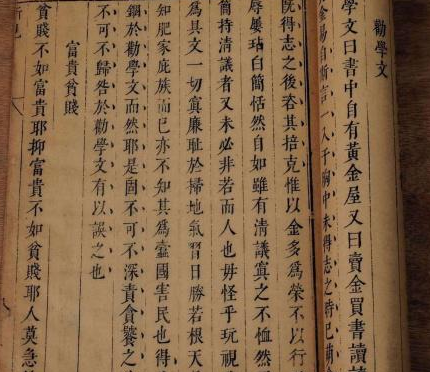 勸學文
學文曰書中自有黃金屋又曰賣金買書讀
金易自斯言一入于胸中未得志之時已萌
既得志之後恣其掊克惟以金多爲榮不以行
辱屢玷白簡恬然自如雖有清議寘之不恤然
簡持清議者又未必非若而人也毋怪乎玩視
爲具文一切寘廉耻於掃地氣習日勝若根天
知肥家庇族而已亦不知其爲蠹國害民也得
錮於勸學文而然耶是固不可不深責貪饕之
不可不歸咎於勸學文有以誤之也
富貴貧賤
貧賤不如富貴耶抑富貴不如貧賤耶人莫急